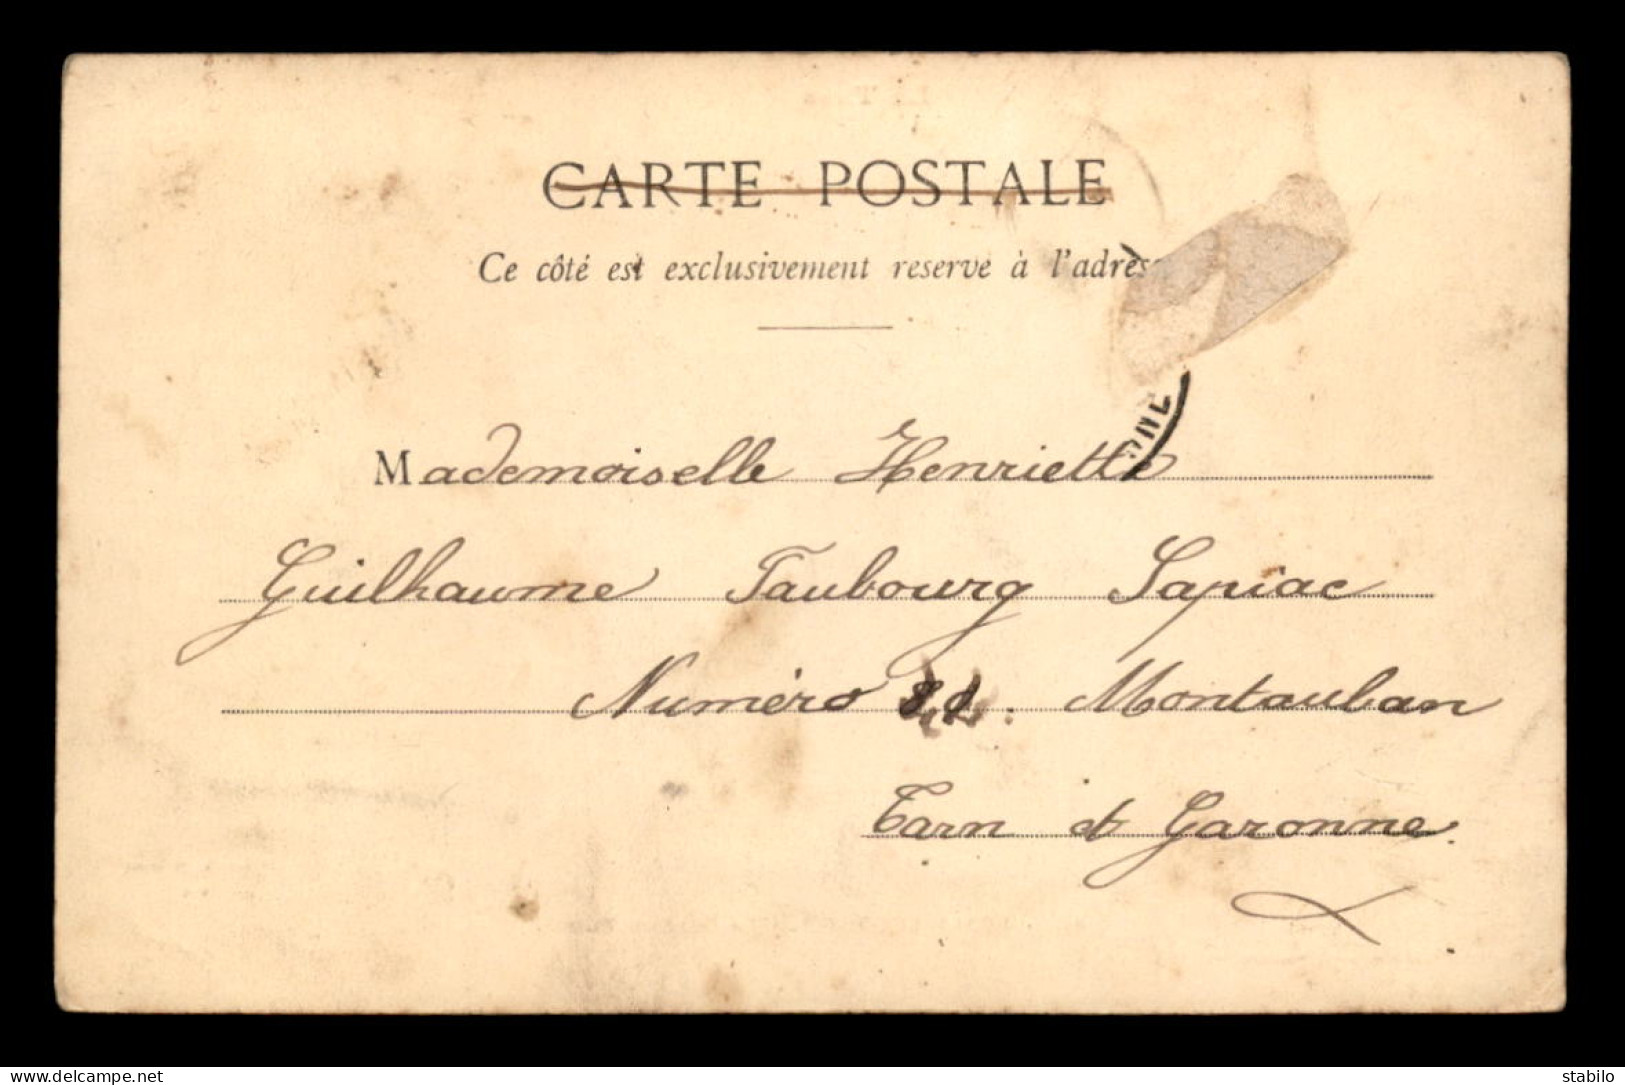 CARTE POSTALE
Ce côté est exclusivement reserve à l'adres
Mademoiselle Henriette
Guilhaume Faubourg Sapiac
Numéro Montauban
Tarn et Garonne.
Website: www.delcampe.net
stabilo